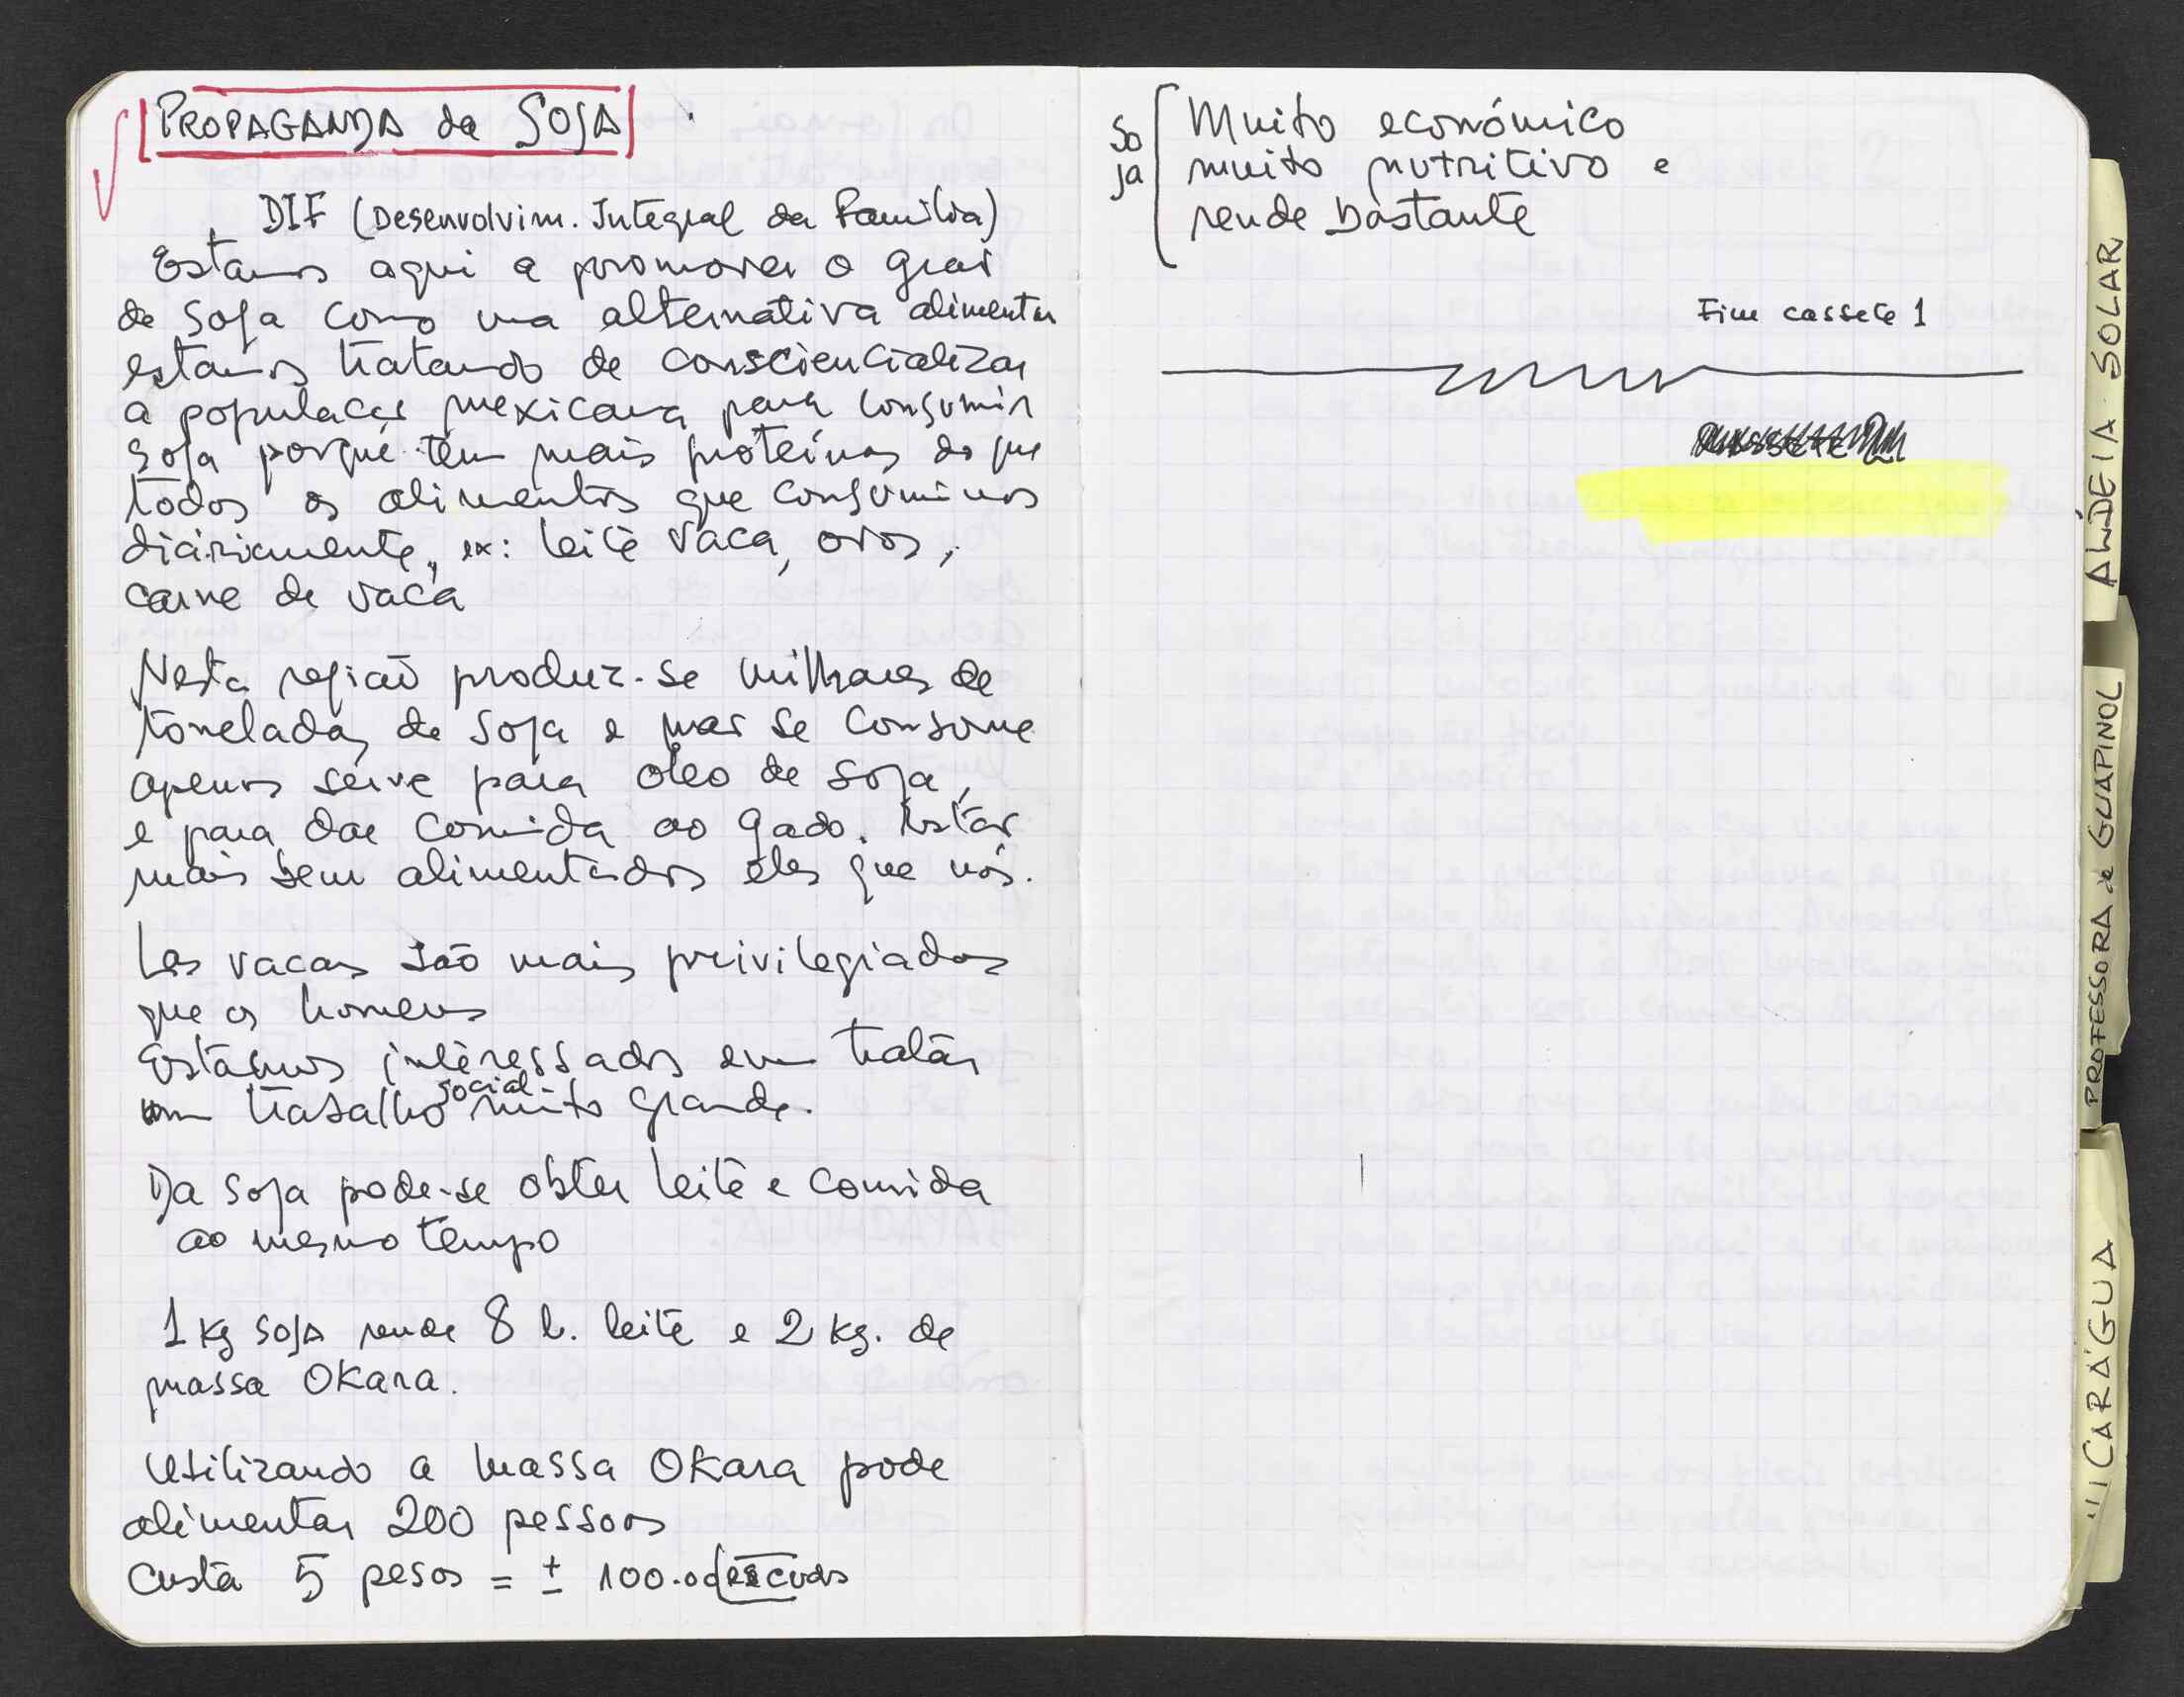 PROPAGANDA da SOJA
DIF (Desenvolvim. Integral da Familia)
Estamos aqui a promover o grão
de soja como uma alternativa alimentar
estamos tratando de consciencializar
a população mexicana para consumir
soja porque tem mais proteínas do que
todos os alimentos que consumimos
diáriamente, ex: leite vaca, ovos,
carne de vaca
Nesta região produz-se milhares de
toneladas de soja e mas se consome
apenas serve para oleo de soja,
e para dar comida ao gado. Estão
mais bem alimentados eles que nós.
Las vacas são mais privilegiadas
que os homens
Estamos interessados em tratar
um trabalho social muito grande.
Da soja pode-se obter leite e comida
ao mesmo tempo
1 Kg soja rende 8 l. leite e 2 kg. de
massa OKara.
Utilizando a massa OKara pode
alimentar 200 pessoas
Custa 5 pesos = ± 100.00 escudos
So
ja
Muito económico
muito nutritivo e
rende bastante
Fim cassete 1
ALDEIA SOLAR
PROFESSORA de GUAPINOL
NICARÁGUA